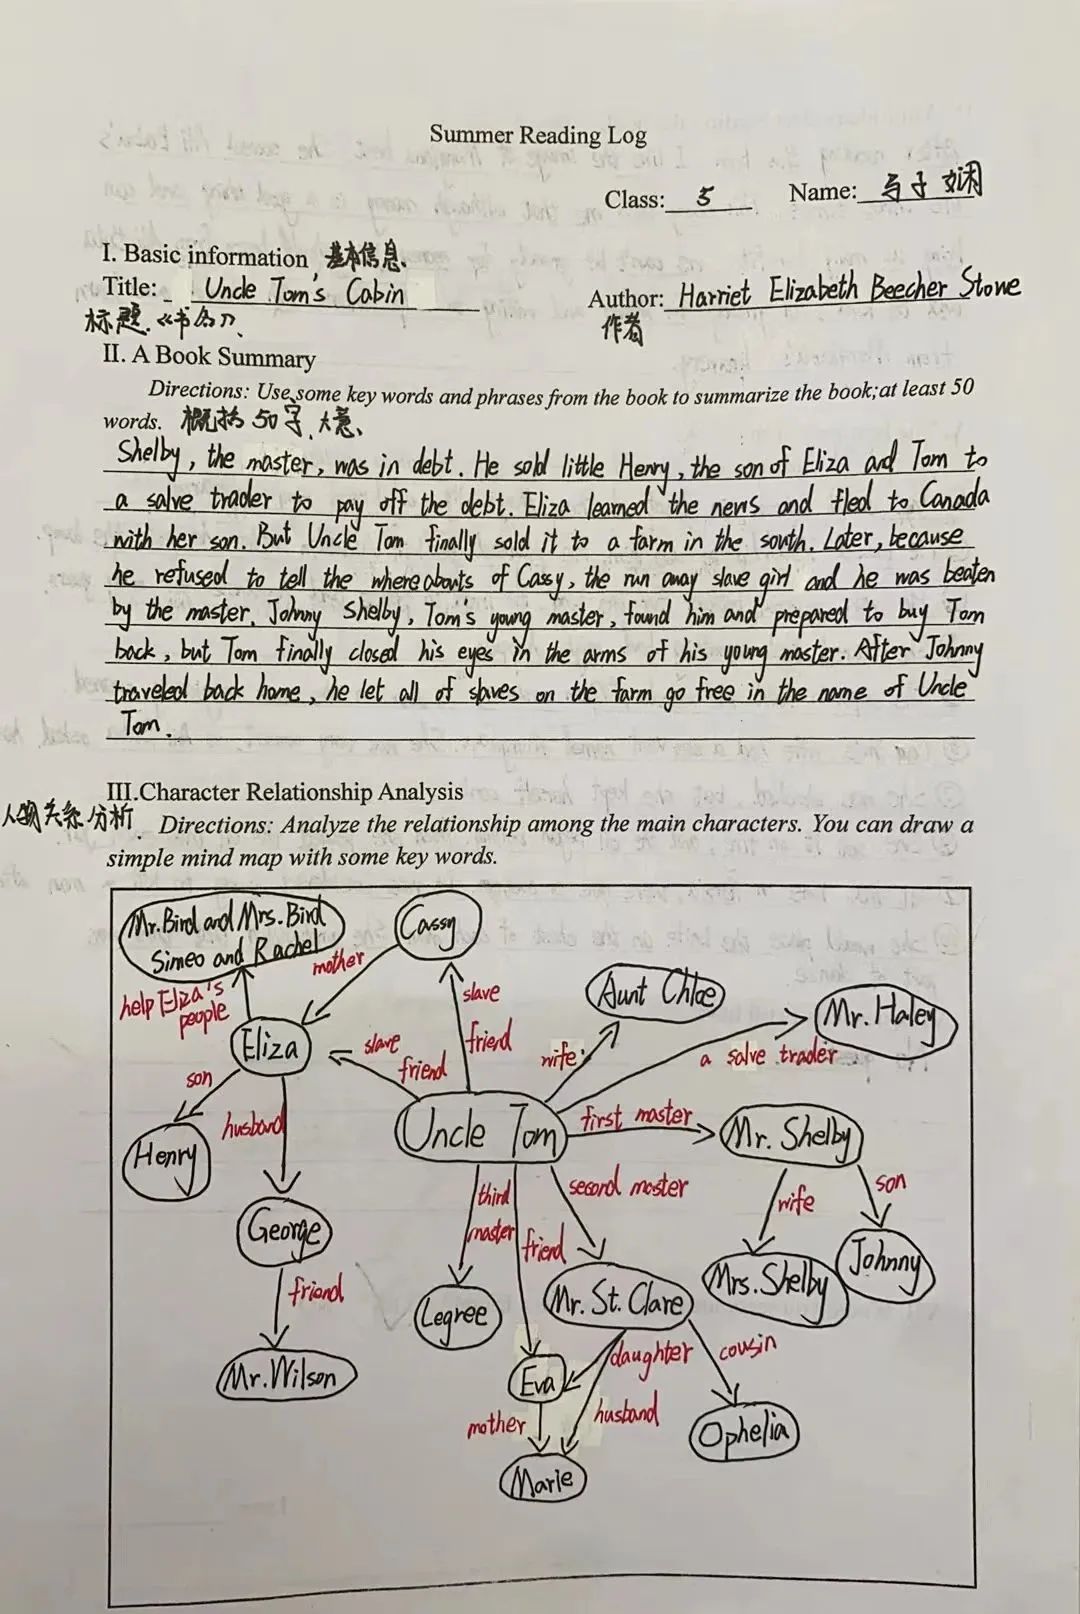 Summer Reading Log
Class: 5 Name: 马子娴
I. Basic information 基本信息、
Title: Uncle Tom's Cabin Author: Harriet Elizabeth Beecher Stowe
标题.《书名》、 作者
II. A Book Summary
Directions: Use some key words and phrases from the book to summarize the book;at least 50
words. 概括50字、大意、
Shelby, the master, was in debt. He sold little Henry, the son of Eliza and Tom to
a salve trader to pay off the debt. Eliza learned the news and fled to Canada
with her son. But Uncle Tom finally sold it to a farm in the south. Later, because
he refused to tell the whereabouts of Cassy, the run away slave girl and he was beaten
by the master. Johnny Shelby, Tom's young master, found him and prepared to buy Tom
back, but Tom finally closed his eyes in the arms of his young master. After Johnny
traveled back home, he let all of slaves on the farm go free in the name of Uncle
Tom.
III.Character Relationship Analysis
人物关系分析. Directions: Analyze the relationship among the main characters. You can draw a
simple mind map with some key words.
Mr.Bird and Mrs.Bird
Simeo and Rachel
Cassy
mother
help Eliza's
people
slave
friend
Aunt Chloe
Mr. Haley
Eliza
slave
friend
wife
a salve trader
son
husband
Henry
Uncle Tom
first master
Mr. Shelby
third
master
second master
wife
son
George
friend
Mrs. Shelby
Johnny
friend
Legree
Mr. St. Clare
Mr.Wilson
Eva
daughter
cousin
mother
husband
Ophelia
Marie